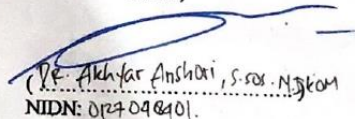 (DR. Akhyar Anshori, S.sos. M.IKOM
NIDN: 0127048401.